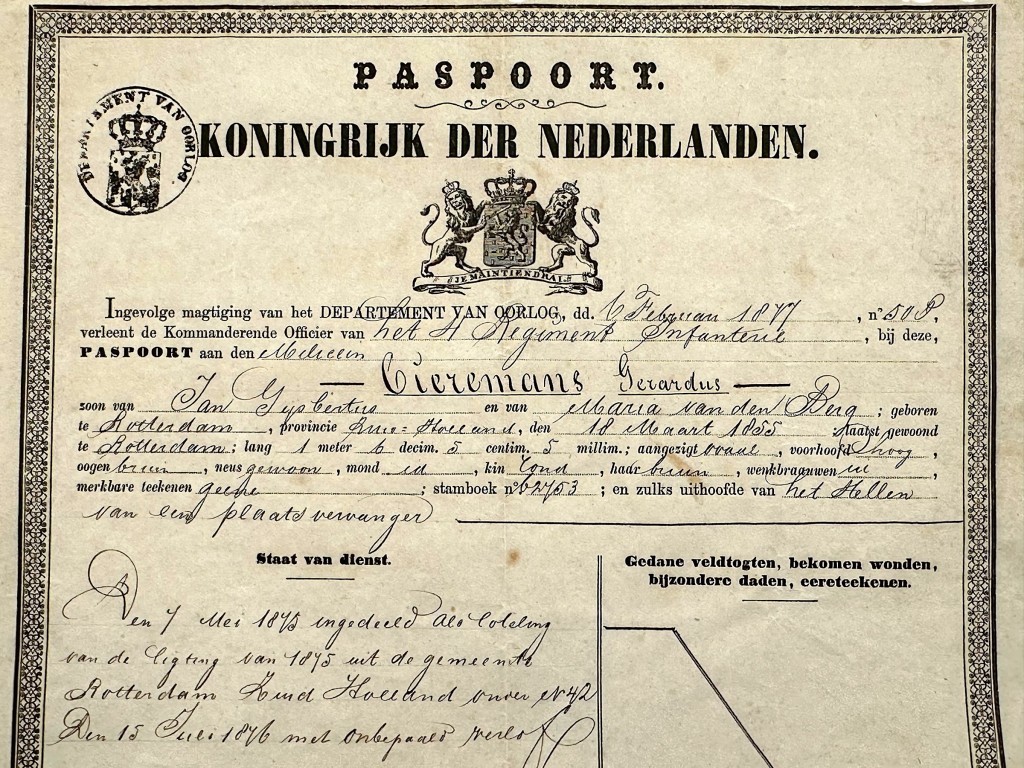 PASPOORT.
DEPARTEMENT VAN OORLOG.
KONINGRIJK DER NEDERLANDEN.
JE MAINTIENDRAI.
Ingevolge magtiging van het DEPARTEMENT VAN OORLOG, dd. 6 Februari 1877, n° 50 P,
verleent de Kommanderende Officier van het 4 Regiment Infanterie, bij deze,
PASPOORT aan den Milicien
— Cieremans Gerardus —
zoon van Jan Gijsbertus en van Maria van den Berg; geboren
te Rotterdam, provincie Zuid=Holland, den 18 Maart 1855 laatst gewoond
te Rotterdam; lang 1 meter 6 decim. 5 centim. 5 millim.; aangezigt ovaal, voorhoofd hoog,
oogen bruin, neus gewoon, mond id, kin rond, haar bruin, wenkbraauwen id,
merkbare teekenen geene; stamboek n° 62753; en zulks uithoofde van het stellen
van een plaatsvervanger
Staat van dienst.
Gedane veldtogten, bekomen wonden,
bijzondere daden, eereteekenen.
Den 7 Mei 1875 ingedeeld als loteling
van de ligting van 1875 uit de gemeente
Rotterdam Zuid Holland onder N° 42
Den 15 Juli 1876 met onbepaald verlof